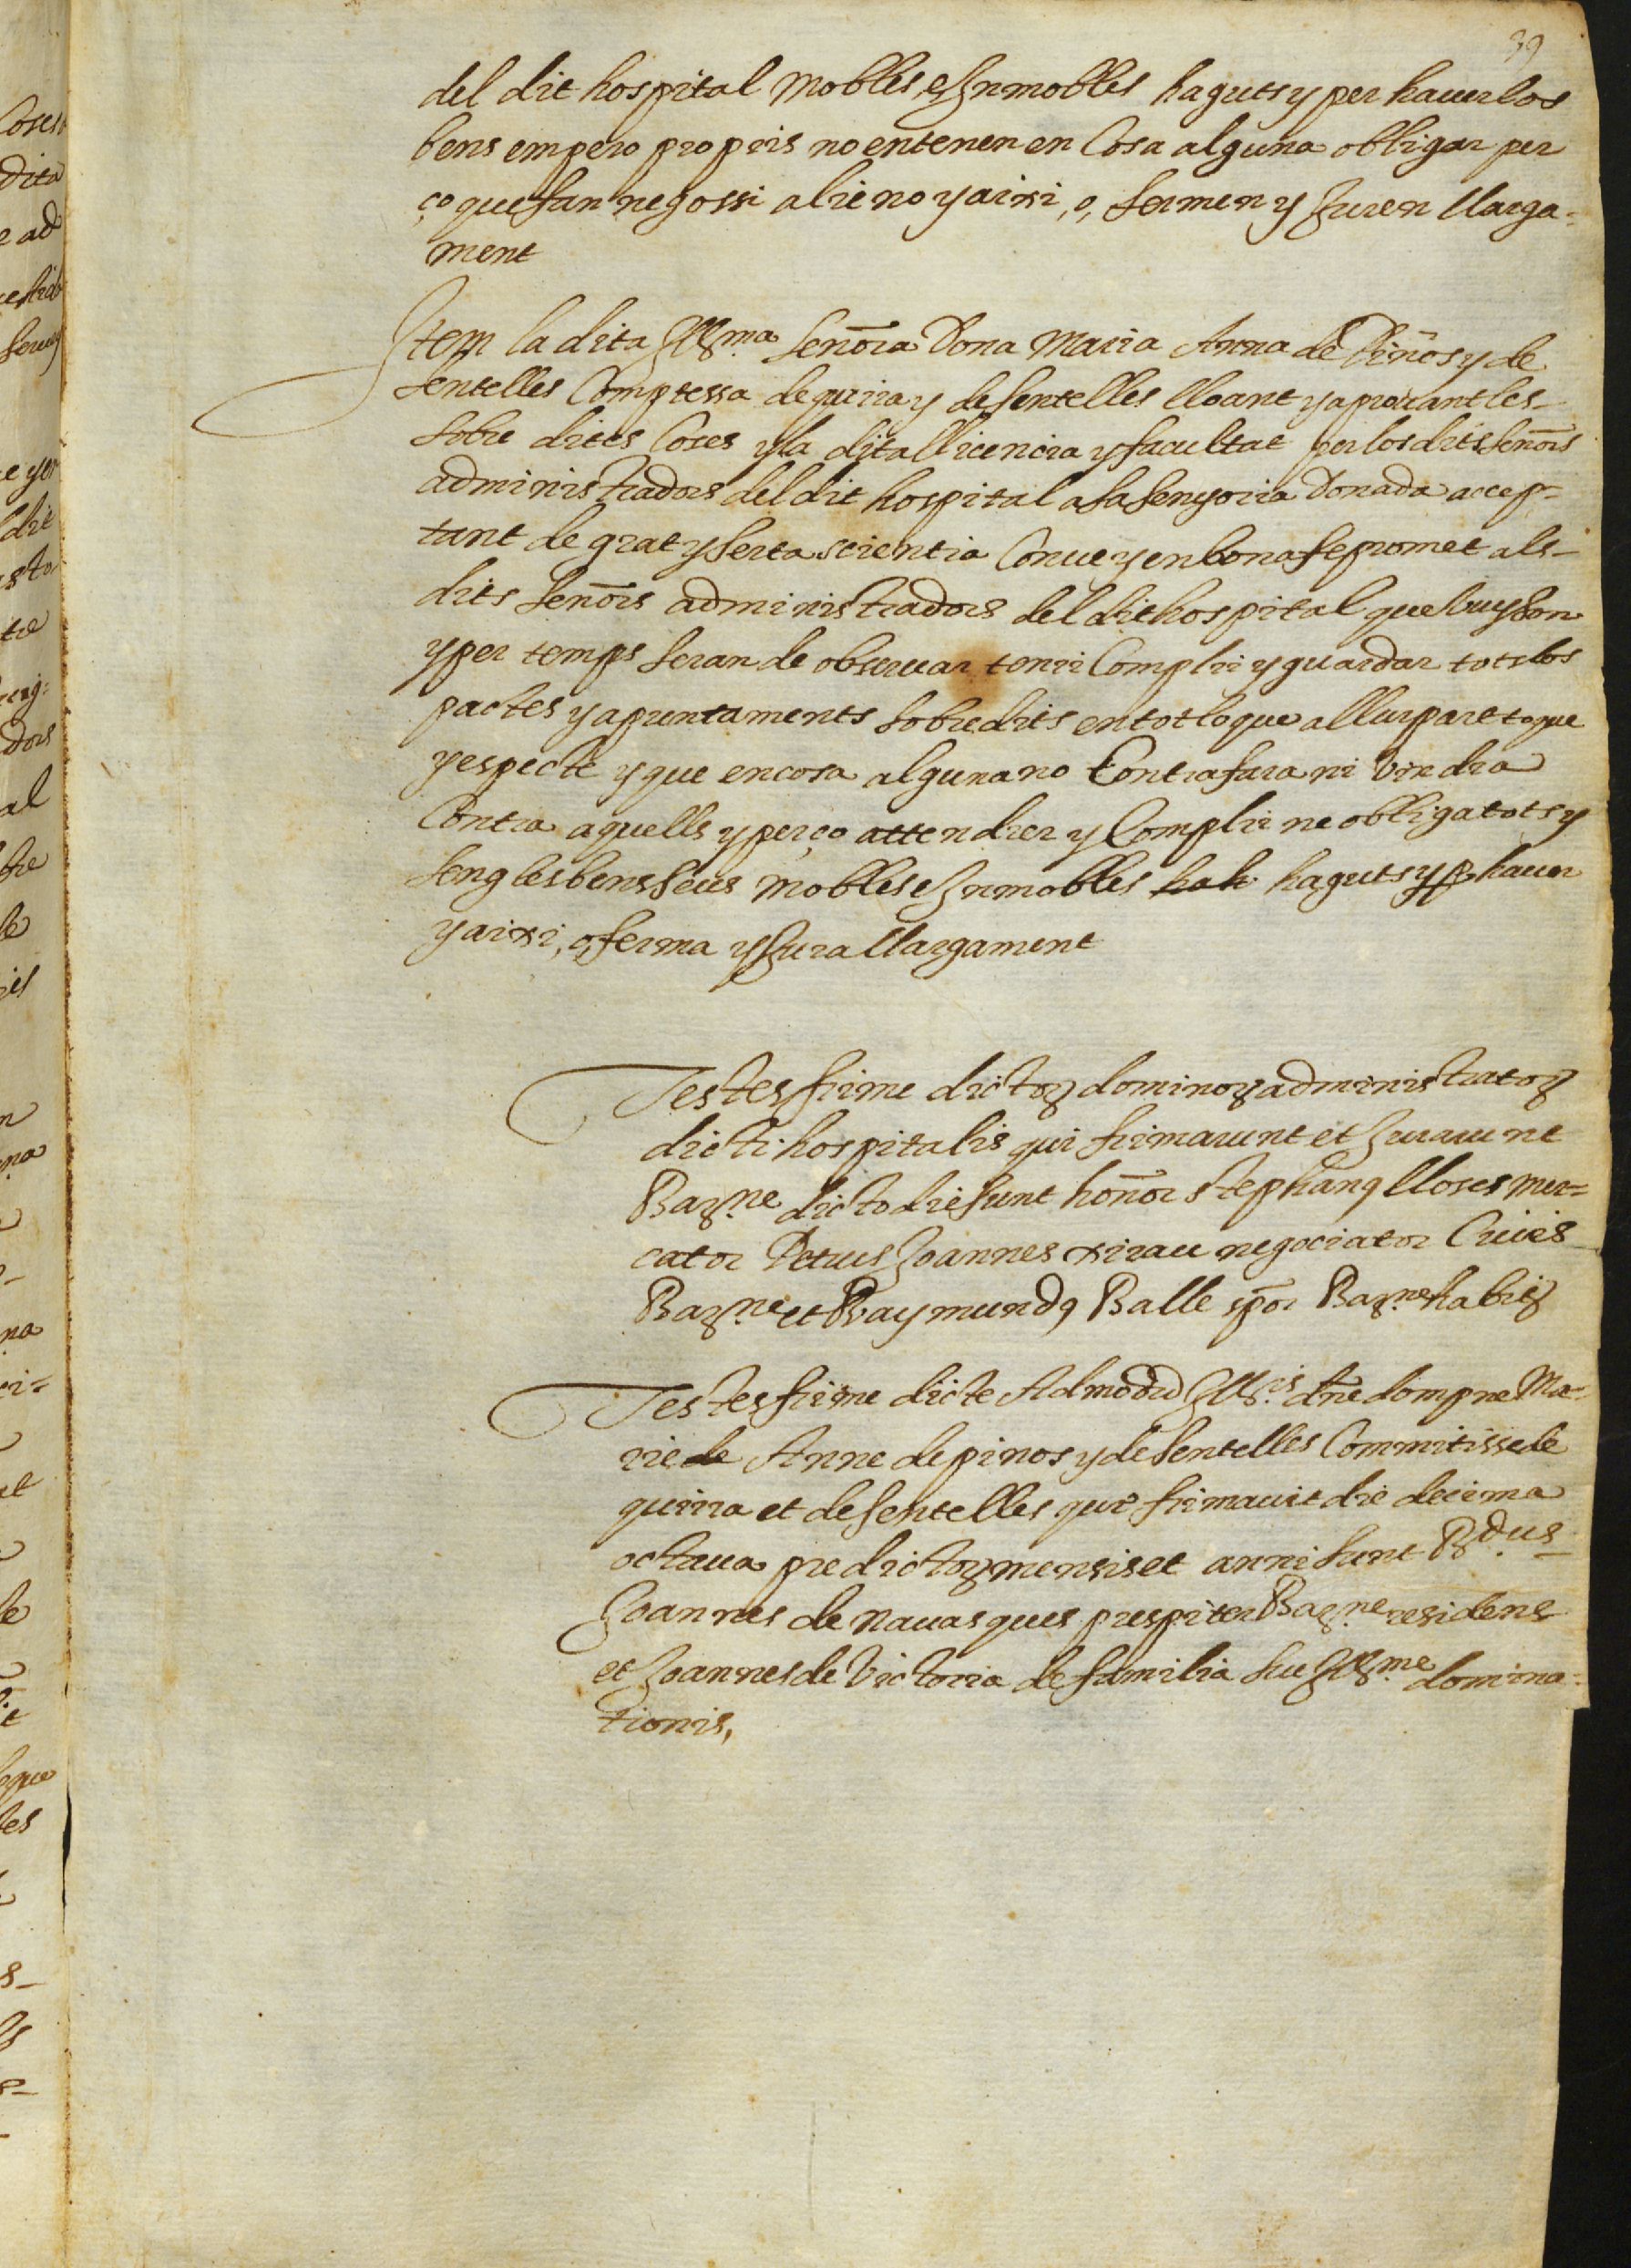 39
del dit hospital mobles, e Inmobles haguts y per hauer los
bens empero propris no entenen en Cosa alguna obligar per
ço que fan negossi alieno y aixi, o, fermen y Juren llarga-
ment
Item la dita Illma Señora Dona Maria Anna de Piños y de
Sentelles Comptessa de quirra y de Sentelles lloant y aprovant les-
sobre dites Coses y la dita llicencia y facultat per los dits Señors
administradors del dit hospital a sa senyoria Donada accep-
tant de grat y Serta scientia Conue y en bona fe promet als-
dits Señors administradors del dit hospital que huy son
y per temps seran de obseruar tenir Complir y guardar tots los
pactes y apuntaments sobredits en tot lo que a llur part toque
y especte y que en cosa alguna no Contrafara ni vindra
Contra aquells y perço attendrer y Complir ne obliga tots y
sengles bens seus mobles e Inmobles hah haguts y p hauer
y aixi, o, ferma y Jura llargament
Testes firme dictoꝝ dominoꝝ administratoꝝ
dicti hospitalis qui firmarunt et Jurarunt
Barne dicto die sunt honor Stephanꝰ lloses mer-
cator Petrus Joannes xirau negociator Ciues
Barne et Raymundꝰ Balle spor Barne habitꝫ
Testes firme dicte Admodū Illis dne dompne Ma-
rie de Anne de pinos y de Sentelles Commitisse de
quirra et de Sentelles que firmauit die decima
octaua predictoꝝ mensis et anni sunt Rdus
Joannes de Nauasques prespiter Barne residens
et Joannes de Victoria de familia sue Illme domina-
tionis,